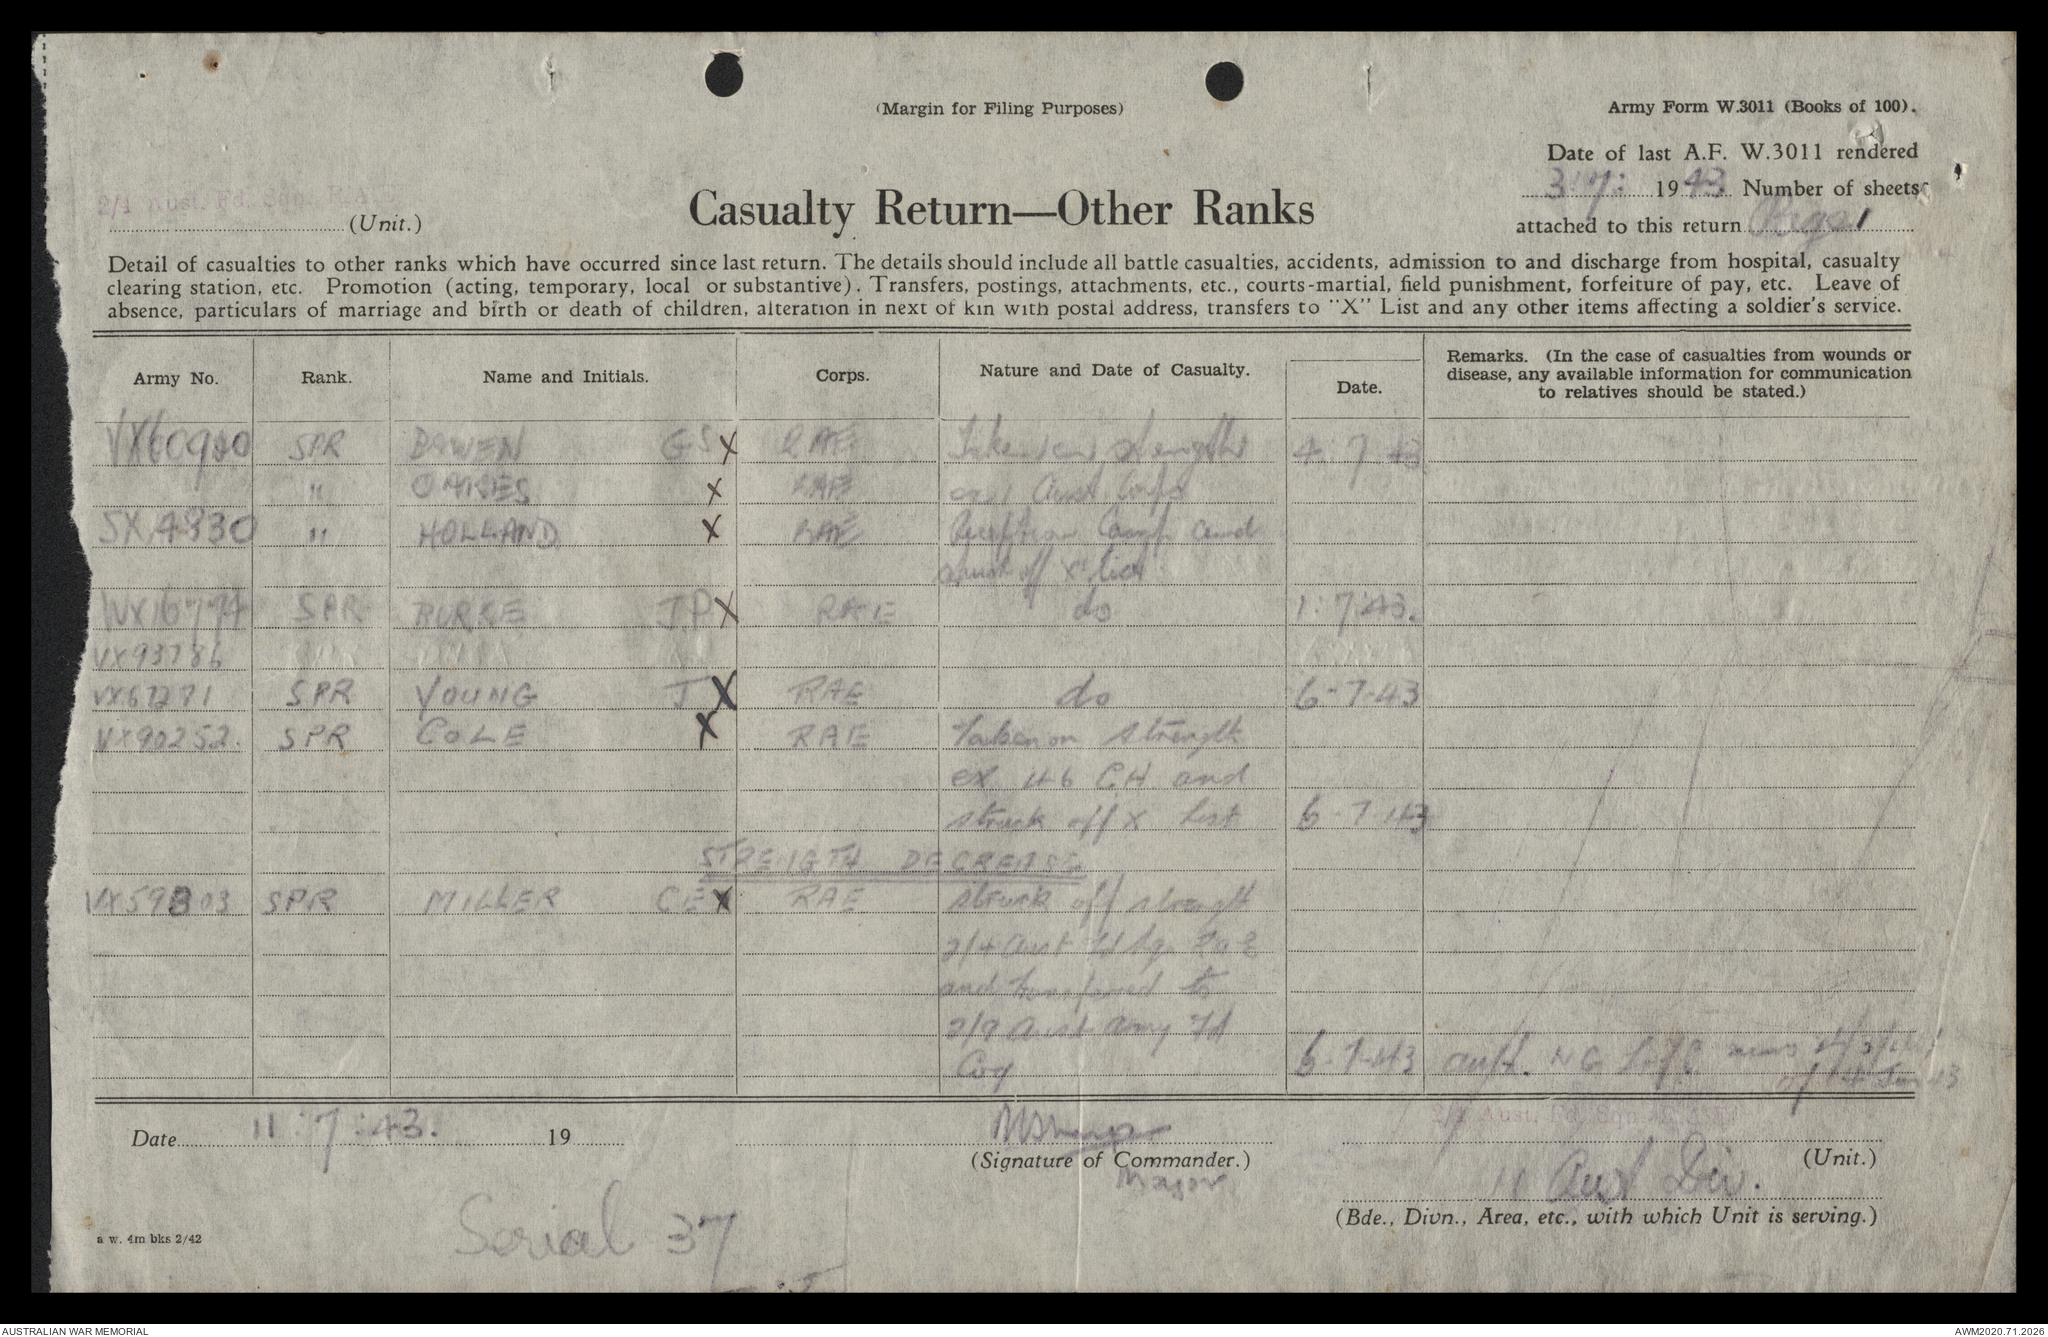 (Margin for Filing Purposes)
Army Form W.3011 (Books of 100).
Date of last A.F. W.3011 rendered
3:7: 1943 Number of sheets
attached to this return Page 1
2/4 Aust. Fd. Sqn. R.A.E.
(Unit.)
Casualty Return—Other Ranks
Detail of casualties to other ranks which have occurred since last return. The details should include all battle casualties, accidents, admission to and discharge from hospital, casualty
clearing station, etc. Promotion (acting, temporary, local or substantive). Transfers, postings, attachments, etc., courts-martial, field punishment, forfeiture of pay, etc. Leave of
absence, particulars of marriage and birth or death of children, alteration in next of kin with postal address, transfers to "X" List and any other items affecting a soldier's service.
Army No. Rank. Name and Initials. Corps. Nature and Date of Casualty. Date. Remarks. (In the case of casualties from wounds or
disease, any available information for communication
to relatives should be stated.)
SPR BOWEN GS X RAE Taken on strength 4:7:43
" OAKES X RAE Aust Corps
SX4830 " HOLLAND X RAE Reception Camp and
struck off X list
SPR BURKE JP X RAE do 1:7:43.
VX93786
SPR YOUNG J X RAE do 6-7-43
VX90252. SPR COLE X RAE Taken on strength
ex 116 CH and
struck off X list 6-7-43
STRENGTH DECREASE
VX59803 SPR MILLER CE X RAE struck off strength
2/4 Aust Fd Sq RAE
and transferred to
2/9 Aust Army Fd
Coy 6-7-43 auth. NG
Date 11:7:43. 19
(Signature of Commander.)
Major
2/4 Aust. Fd. Sqn.
(Unit.)
11 Aust Div.
(Bde., Divn., Area, etc., with which Unit is serving.)
Serial 37
a w. 4m bks 2/42
AUSTRALIAN WAR MEMORIAL
AWM2020.71.2026